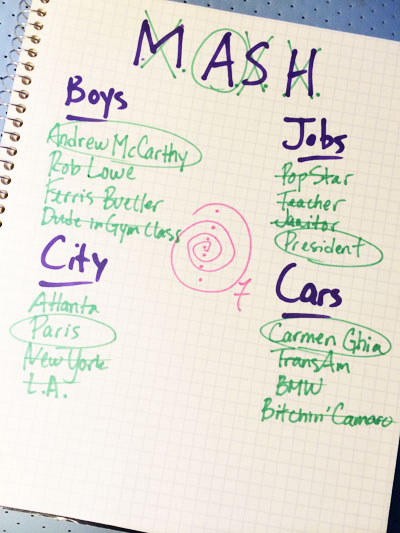 MASH
Boys
Andrew McCarthy
Rob Lowe
Ferris Bueller
Dude in Gym Class
City
Atlanta
Paris
New York
L.A.
7
Jobs
Pop Star
Teacher
Janitor
President
Cars
Carmen Ghia
TransAm
BMW
Bitchin' Camaro